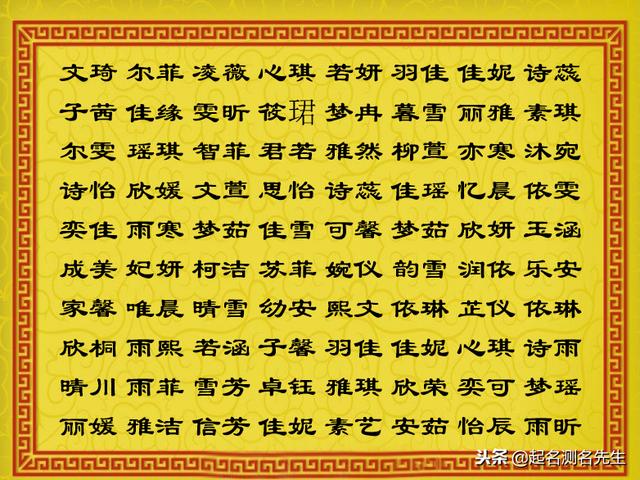 文琦 尔菲 凌薇 心琪 若妍 羽佳 佳妮 诗蕊
子茜 佳缘 雯昕 筱珺 梦冉 暮雪 丽雅 素琪
尔雯 瑶琪 智菲 君若 雅然 柳萱 亦寒 沐宛
诗怡 欣媛 文萱 思怡 诗蕊 佳瑶 忆晨 依雯
奕佳 雨寒 梦茹 佳雪 可馨 梦茹 欣妍 玉涵
成美 妃妍 柯洁 苏菲 婉仪 韵雪 润依 乐安
家馨 唯晨 晴雪 幼安 熙文 依琳 芷仪 依琳
欣桐 雨熙 若涵 子馨 羽佳 佳妮 心琪 诗雨
晴川 雨菲 雪芳 卓钰 雅琪 欣荣 奕可 梦瑶
丽媛 雅洁 信芳 佳妮 素艺 安茹 怡辰 雨昕
头条 @起名测名先生